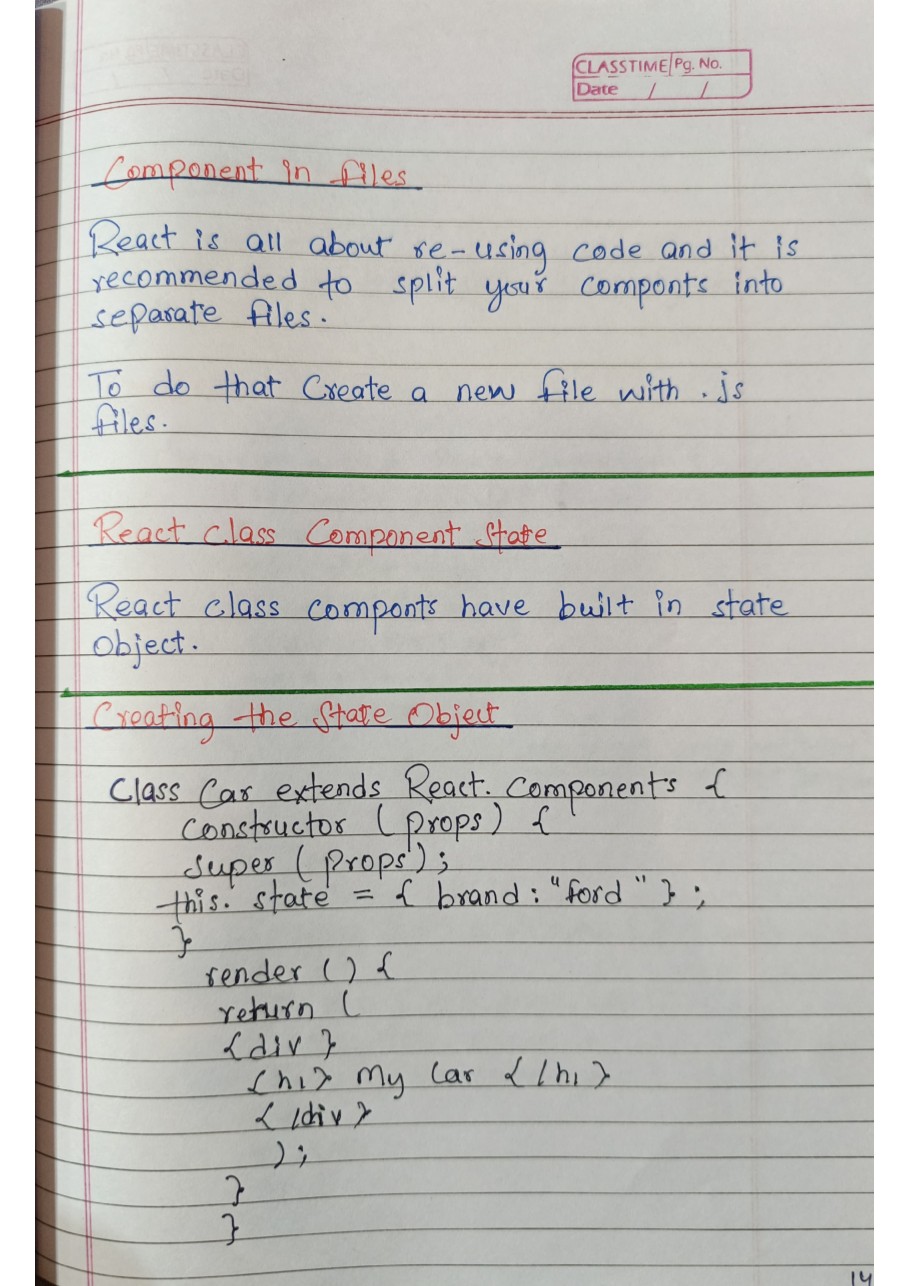 CLASSTIME Pg. No.
Date / /
Component in files
React is all about re-using code and it is
recommended to split your componts into
separate files.
To do that Create a new file with .js
files.
React Class Component State
React class componts have built in state
Object.
Creating the State Object
Class Car extends React. Components {
Constructor ( props ) {
super ( props );
this. state = { brand : "ford" } ;
}
render () {
return (
{ div }
{ h1 } My Car { / h1 }
{ /div }
);
}
}
14